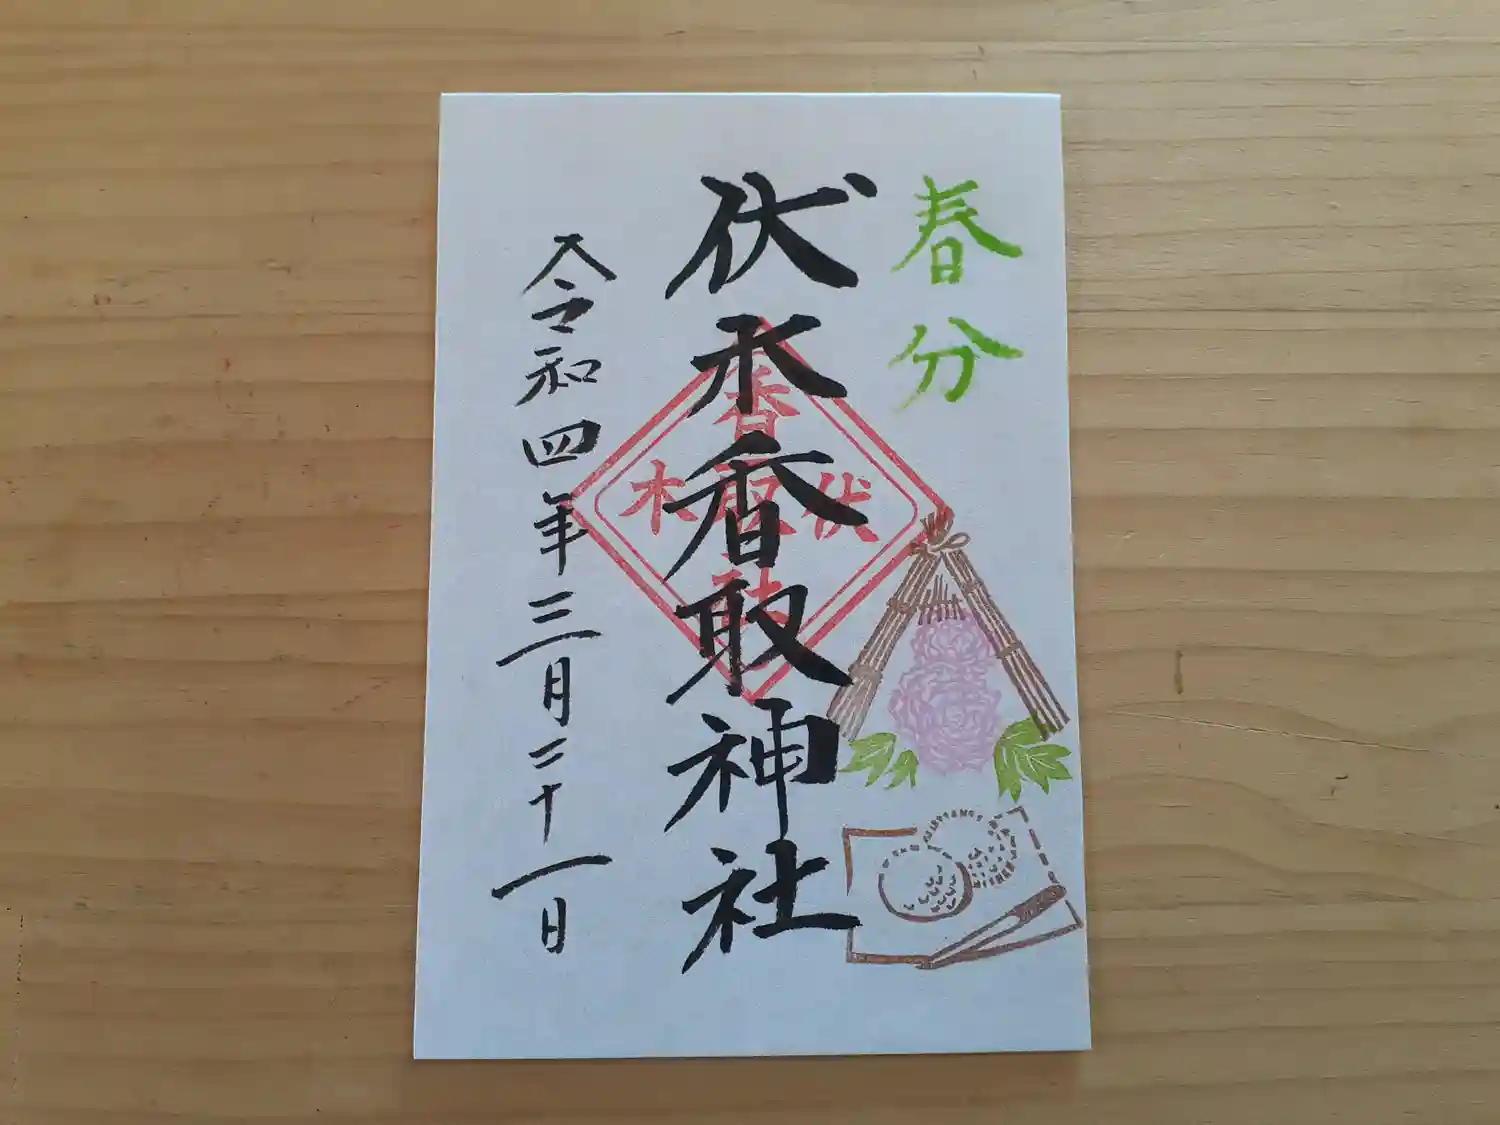 春分
伏木香取神社
令和四年三月二十一日
香
木取伏
社